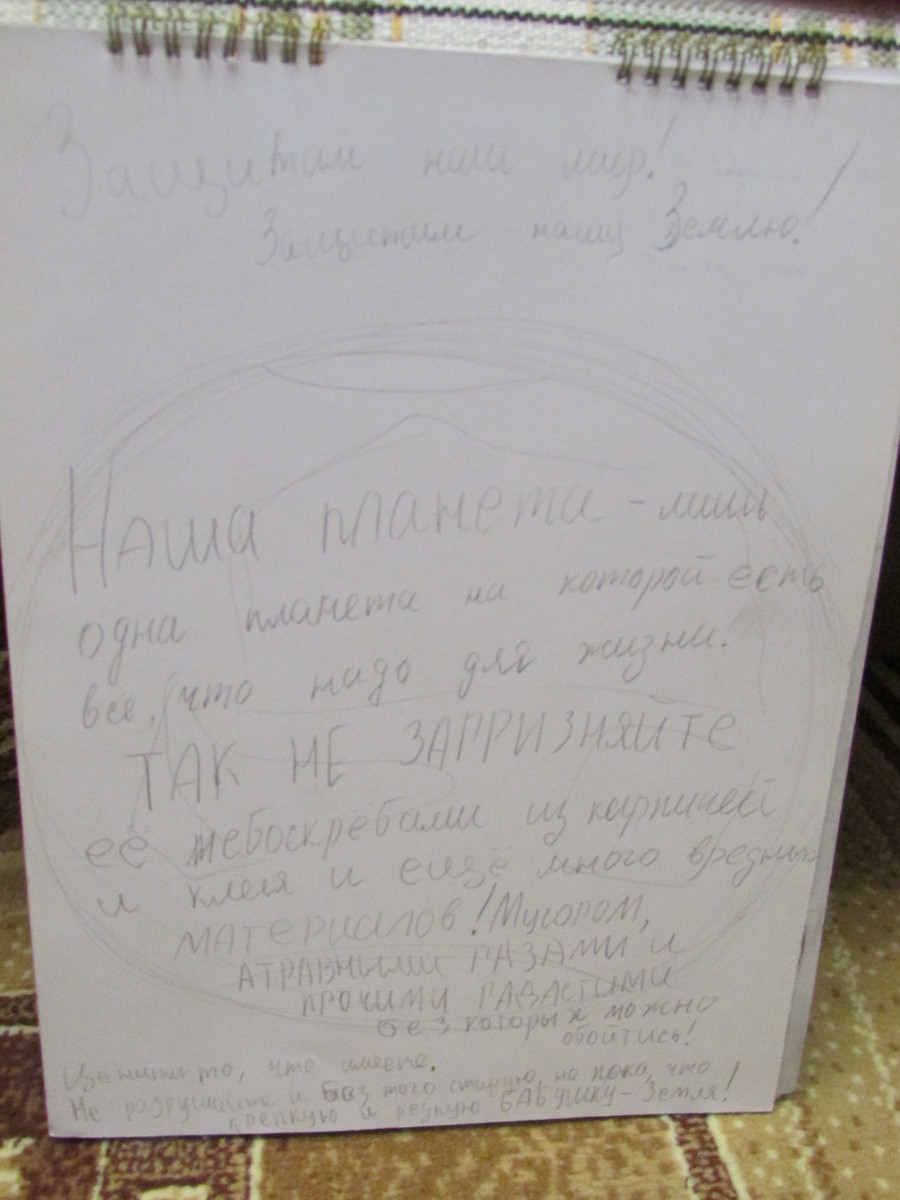 Защитим наш мир!
Защитим нашу Землю!
Наша планета - лишь
одна планета на которой есть
всё, что надо для жизни.
ТАК НЕ ЗАГРРИЗНЯЙТЕ
её небоскрёбами из кирпичей
и клея и ещё много вредных
материалов! Мусором,
АТРАВНЫМИ ГАЗАМИ и
ПРОЧИМИ ГАДАСТИМИ
без которых можно
обойтись!
Цените то, что имеете.
Не разрушайте и без того старую, но пока, что
крепкую и редкую БАБУШКУ - Земля!